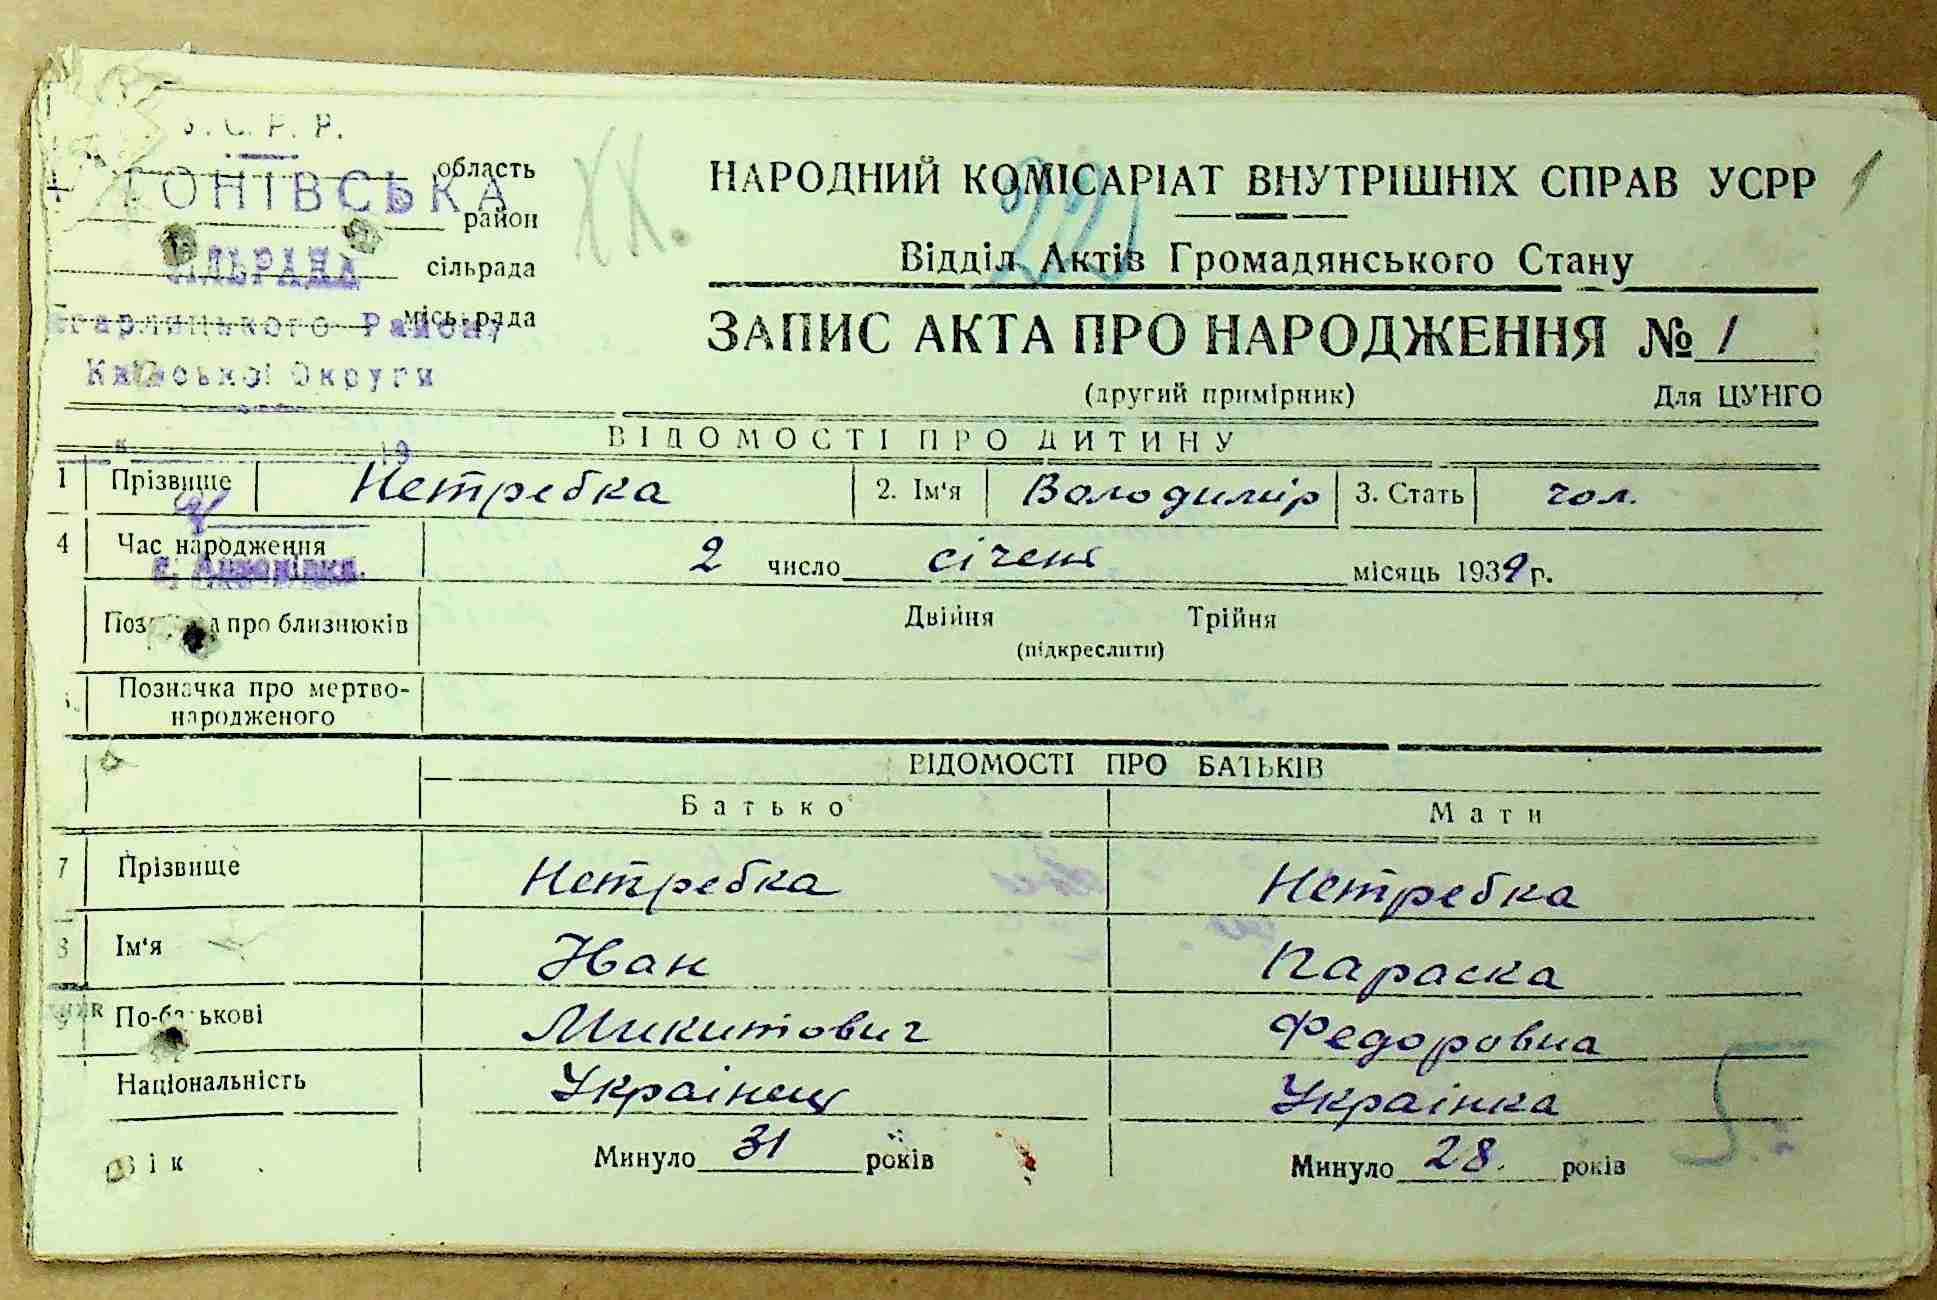 С. Р. Р.
область
ОНІВСЬКА
район
сільрада
міськрада
Району
Київської Округи
ХХ.
НАРОДНИЙ КОМІСАРІАТ ВНУТРІШНІХ СПРАВ УСРР
1
221
Відділ Актів Громадянського Стану
ЗАПИС АКТА ПРО НАРОДЖЕННЯ № 1
(другий примірник) Для ЦУНГО
ВІДОМОСТІ ПРО ДИТИНУ
19
1 Прізвище Нетребка 2. Ім'я Володимір 3. Стать чол.
4 Час народження 2 число січень місяць 1939 р.
про близнюків Двійня Трійня
(підкреслити)
Позначка про мертво-
народженого
ВІДОМОСТІ ПРО БАТЬКІВ
Батько Мати
7 Прізвище Нетребка Нетребка
8 Ім'я Іван Параска
9 По-батькові Микитович Федоровна
Національність Українец Українка
5
Вік Минуло 31 років Минуло 28. років